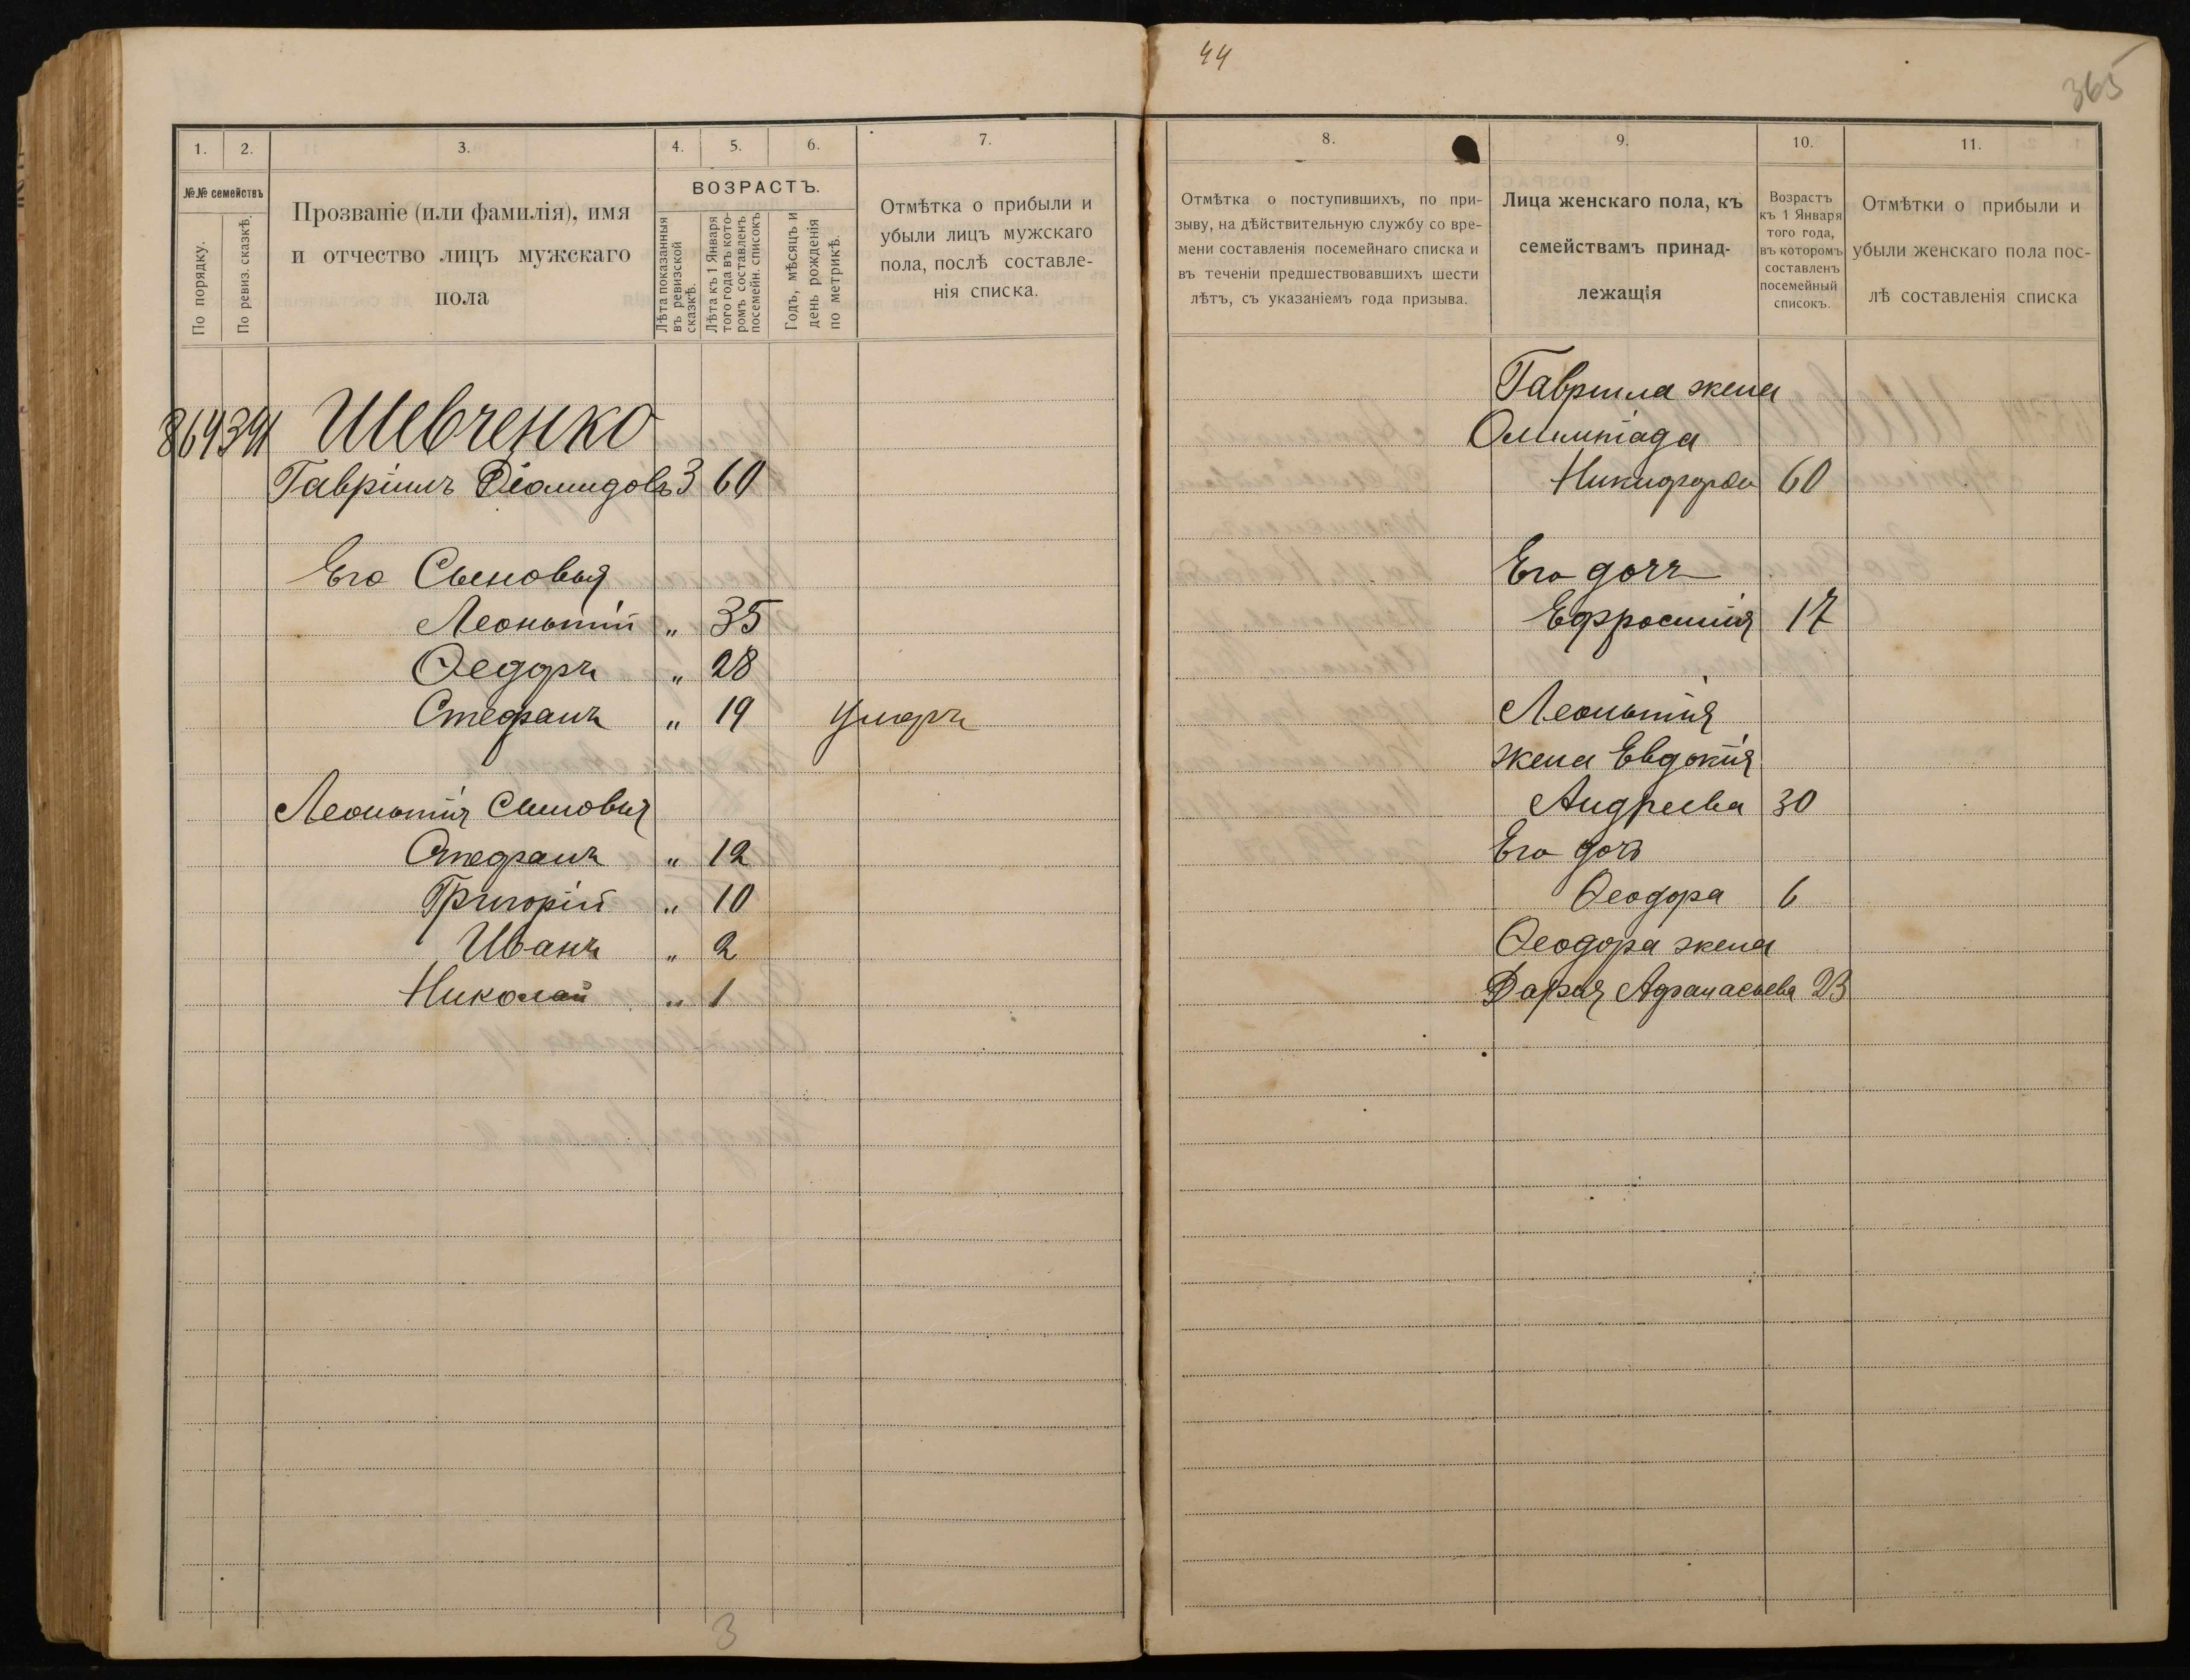 44
365
1.
2.
3.
4.
5.
6.
7.
№№ семействъ
По порядку.
По ревиз. сказкѣ.
Прозваніе (или фамилія), имя
и отчество лицъ мужскаго
пола
ВОЗРАСТЪ.
Лѣта показанныя
въ ревизской
сказкѣ.
Лѣта къ 1 Января
того года въ кото-
ромъ составленъ
посемейн. списокъ
Годъ, мѣсяцъ и
день рожденія
по метрикѣ.
Отмѣтка о прибыли и
убыли лицъ мужскаго
пола, послѣ составле-
нія списка.
Шевченко
Гавріилъ Діомидовъ 3 60
Его Сыновья
Леонтьтій „ 35
Ѳедоръ „ 28
Стефанъ „ 19 умеръ
Леонтьтія Сыновья
Стефанъ „ 12
Григорій „ 10
Иванъ „ 2
Николай „ 1
3
8.
9.
10.
11.
Отмѣтка о поступившихъ, по при-
зыву, на дѣйствительную службу со вре-
мени составленія посемейнаго списка и
въ теченіи предшествовавшихъ шести
лѣтъ, съ указаніемъ года призыва.
Лица женскаго пола, къ
семействамъ принад-
лежащія
Возрастъ
къ 1 Января
того года,
въ которомъ
составленъ
посемейный
списокъ.
Отмѣтки о прибыли и
убыли женскаго пола пос-
лѣ составленія списка
Гавриила жена
Олимпіада
Никифорова 60
Его дочь
Ефросинія 17
Леонтьтія
жена Евдокія
Андреева 30
Его дочь
Ѳеодора 6
Ѳеодора жена
Дарья Афанасьева 23